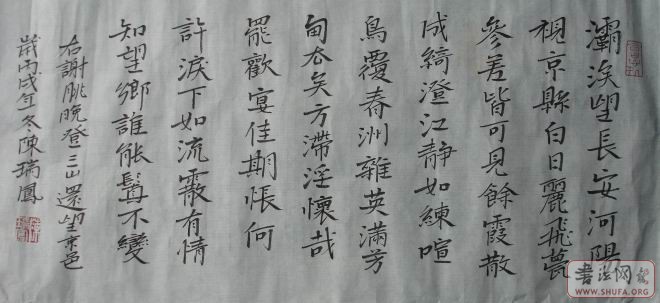 灞涘望長安河陽
視京縣白日麗飛甍
參差皆可見餘霞散
成綺澄江靜如練喧
鳥覆春洲雜英滿芳
甸去矣方滯淫懷哉
罷歡宴佳期悵何
許淚下如流霰有情
知望鄉誰能鬒不變
右謝朓晚登三山還望京邑
歲丙戌年冬陳瑞鳳
書法网
WWW.SHUFA.ORG